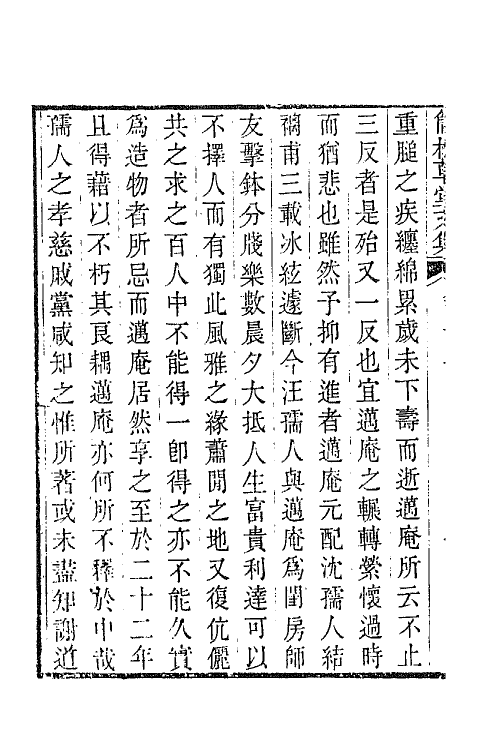 重膇之疾纏綿累歲未下壽而逝邁庵所云不止
三反者是殆又一反也宜邁庵之輾轉縈懷過時
而猶悲也雖然予抑有進者邁庵元配沈孺人結
褵甫三載冰絃遽斷今汪孺人與邁庵爲閨房師
友擊鉢分牋樂數晨夕大抵人生富貴利達可以
不擇人而有獨此風雅之緣蕭閒之地又復伉儷
共之求之百人中不能得一卽得之亦不能久實
爲造物者所忌而邁庵居然享之至於二十二年
且得藉以不朽其良耦邁庵亦何所不釋於中哉
孺人之孝慈戚黨咸知之惟所著或未盡知謝道